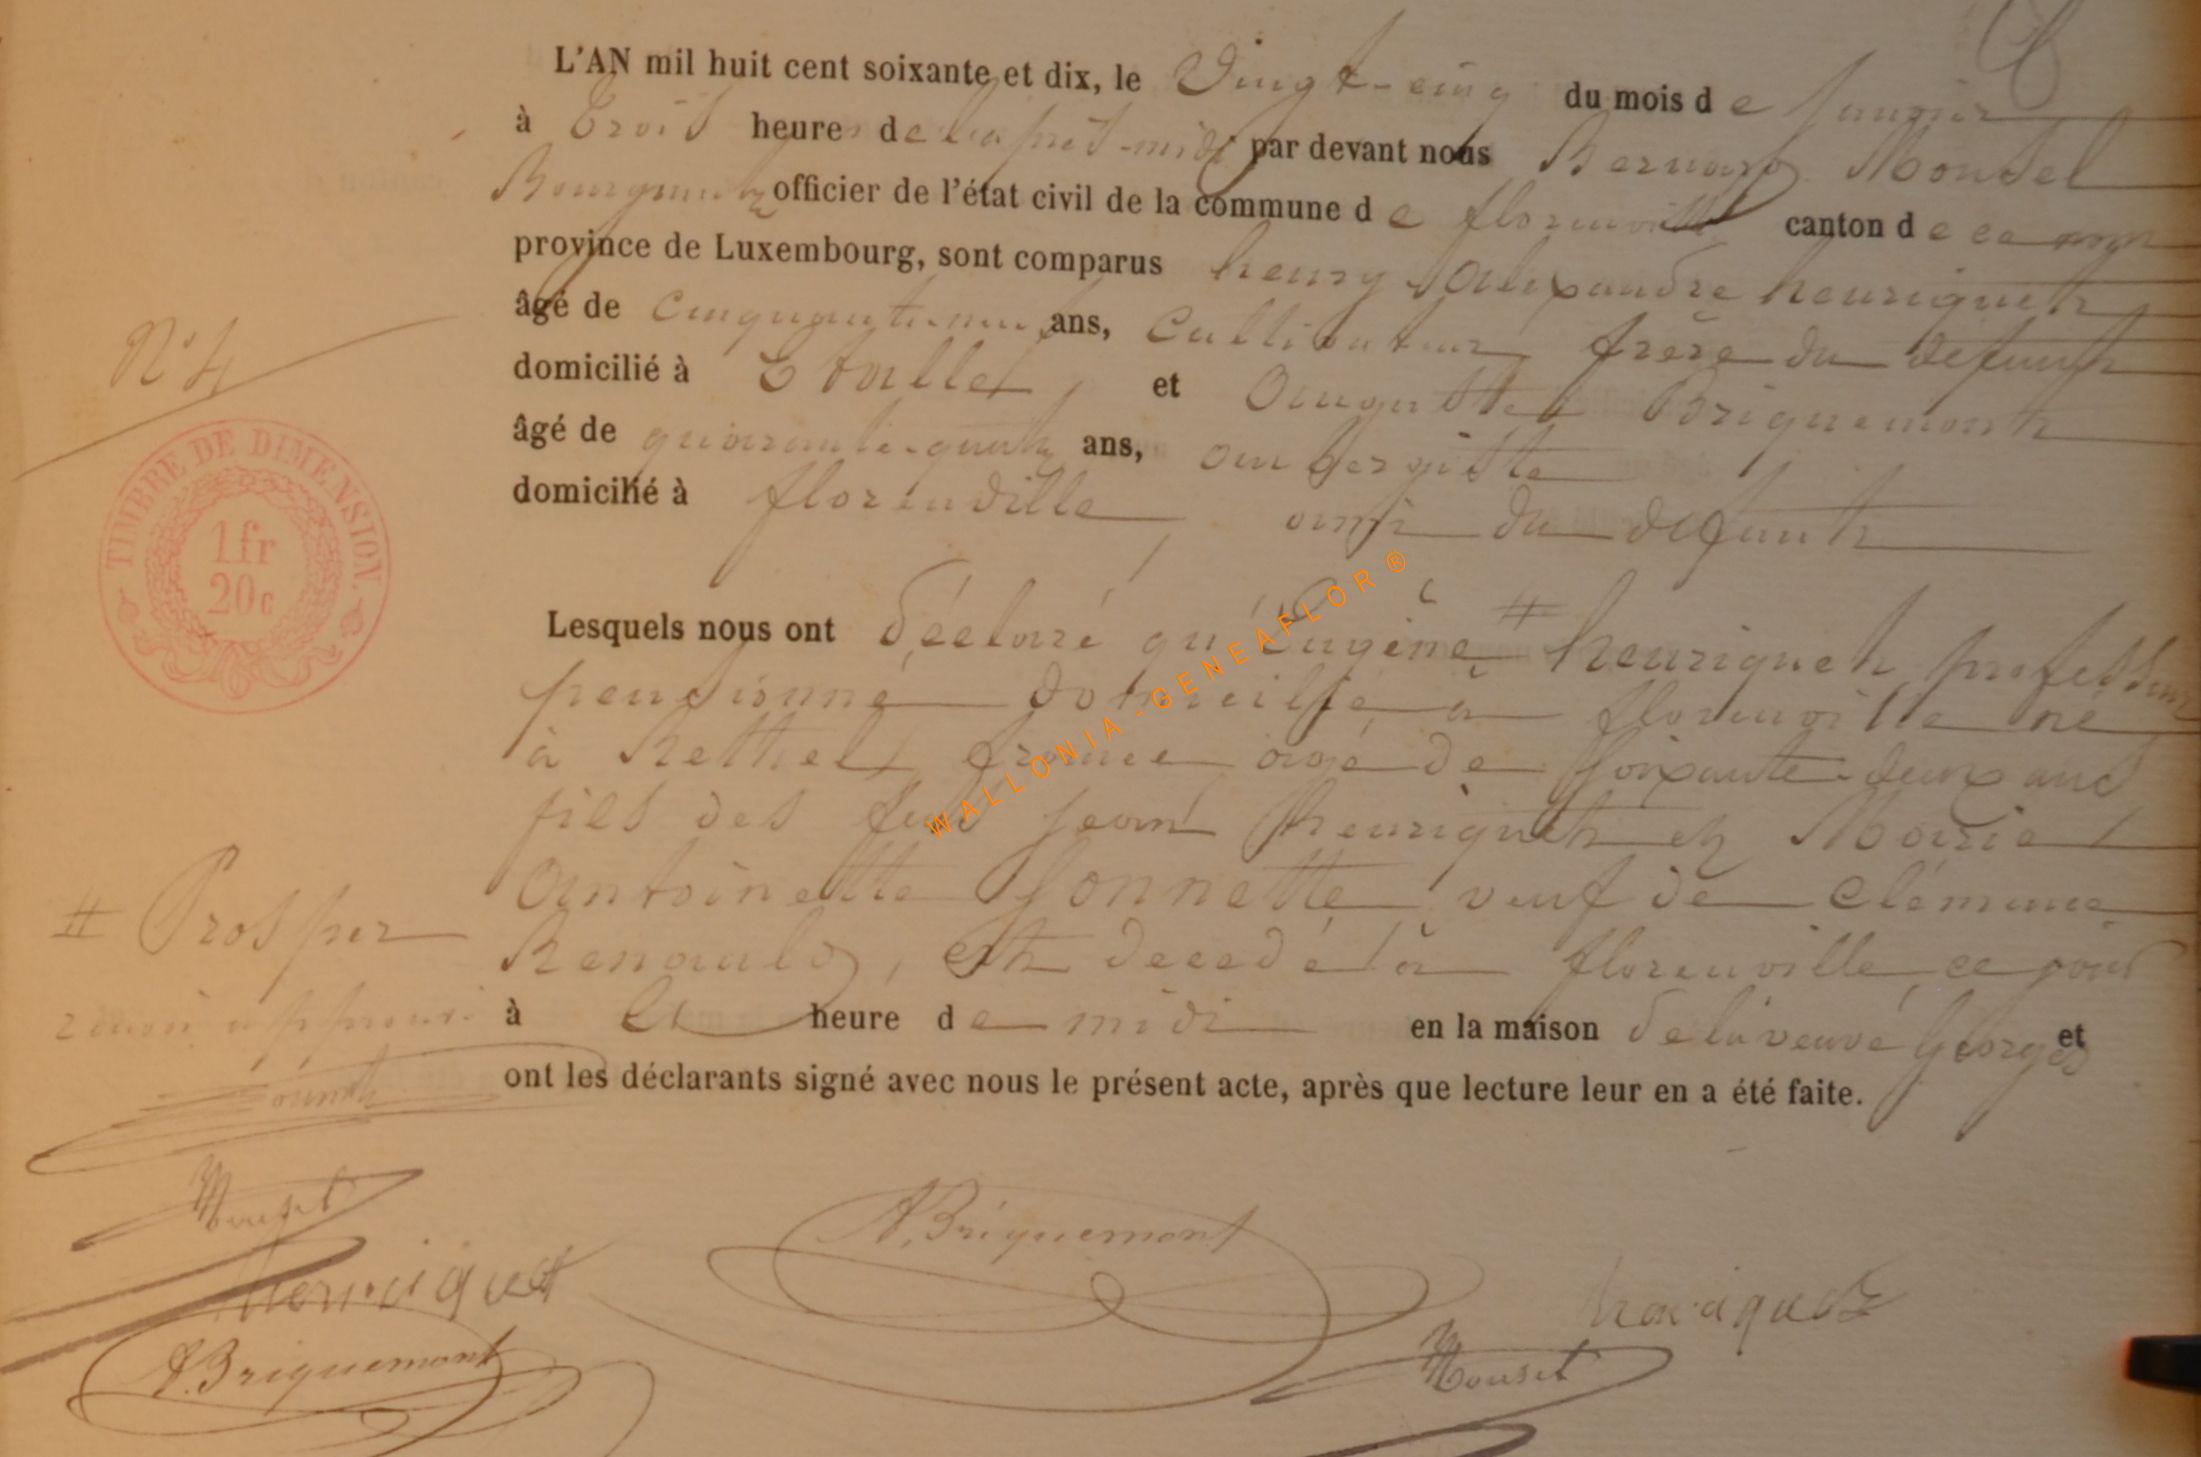 L'AN mil huit cent soixante et dix, le Vingt-cinq du mois de Janvier
à Trois heures de l'après-midi par devant nous Bernard Mousel
Bourgmestre officier de l'état civil de la commune de florenville canton de ce nom
province de Luxembourg, sont comparus henry Alexandre henriquet
âgé de ans, Cultivateur, frère du defunt
N° 4
domicilié à Etalle, et Auguste Briquemont
âgé de quarante-quatre ans, aubergiste
domicilié à florenville, ami du defunt
TIMBRE DE DIMENSION.
1 fr
20 c
WALLONIA-GENEAFLOR ®
Lesquels nous ont déclaré qu'Eugène # henriquet professeur
pensionné domicilié à florenville né
à Rethel france agé de soixante-deux ans
fils des feus Jean henriquet et Marie
Antoinette Sonnette, veuf de Clémence
# Prosper
Renauld, est decedé à florenville ce jour
renvoi approuvé.
à heure de midi en la maison de la veuve Georges et
ont les déclarants signé avec nous le présent acte, après que lecture leur en a été faite.
A. Briquemont
henriquet
henriquet
A. Briquemont